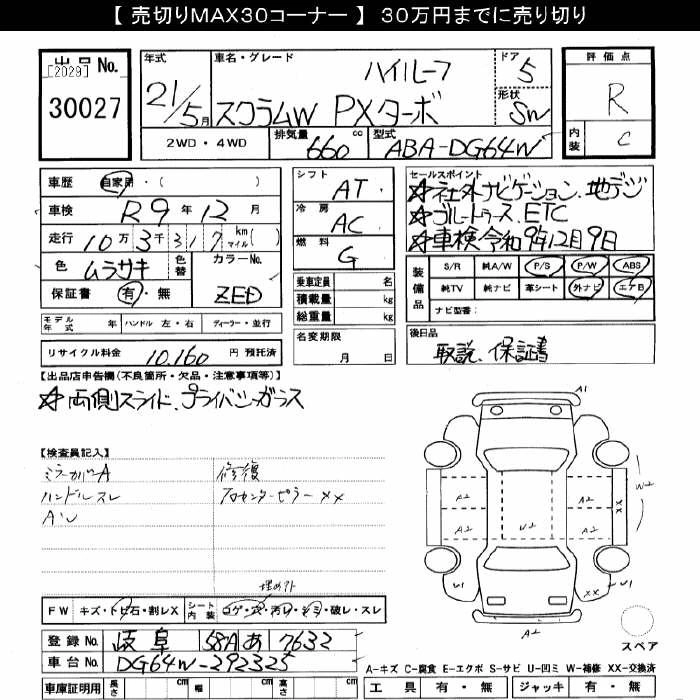 【 売切りMAX30コーナー 】 30万円までに売り切り
出品 No.
[2029]
30027
年式
21/5月
車名・グレード
ハイルーフ
スクラムW PXターボ
ドア
5
形状
SW
評価点
R
内装
C
2WD・4WD
排気量 660 cc
型式 ABA-DG64W
車歴 自家用・( )
車検 R9年12月
走行 10万3千317 km マイル( )
色 ムラサキ 色替 カラーNo.
保証書 有・無 ZED
シフト AT
冷房 AC
燃料 G
乗車定員 名
積載量 kg
総重量 kg
セールスポイント
☆社外ナビゲーション、地デジ
☆ブルートゥース、ETC
☆車検、令和9年12月9日
装備品
S/R 純A/W P/S P/W ABS
純TV 純ナビ 革シート 外ナビ エアB
ナビ型番:
モデル年式 年 ハンドル 左・右 ディーラー・並行
リサイクル料金 10,160 円 預託済
名変期限
月 日
後日品
取説、保証書
【出品店申告欄(不良箇所・欠品・注意事項等)】
☆両側スライド、プライバシーガラス
【検査員記入】
ミラーカバーA
ハンドルスレ
修復
センターピラーXX
埋め穴
FW キズ・トビ石・割レX
シート内装 コゲ・穴・汚レ・シミ・破レ・スレ
登録 No. 岐阜 581 あ 7632
車台 No. DG64W-292325
車庫証明用 長さ cm 幅 cm 高さ cm
A1
A2
A2
A2
A2
U2
XX
W2
U1
XX
U1
A2
スペア
A-キズ C-腐食 E-エクボ S-サビ U-凹ミ W-補修 XX-交換済
工具 有・無 ジャッキ 有・無